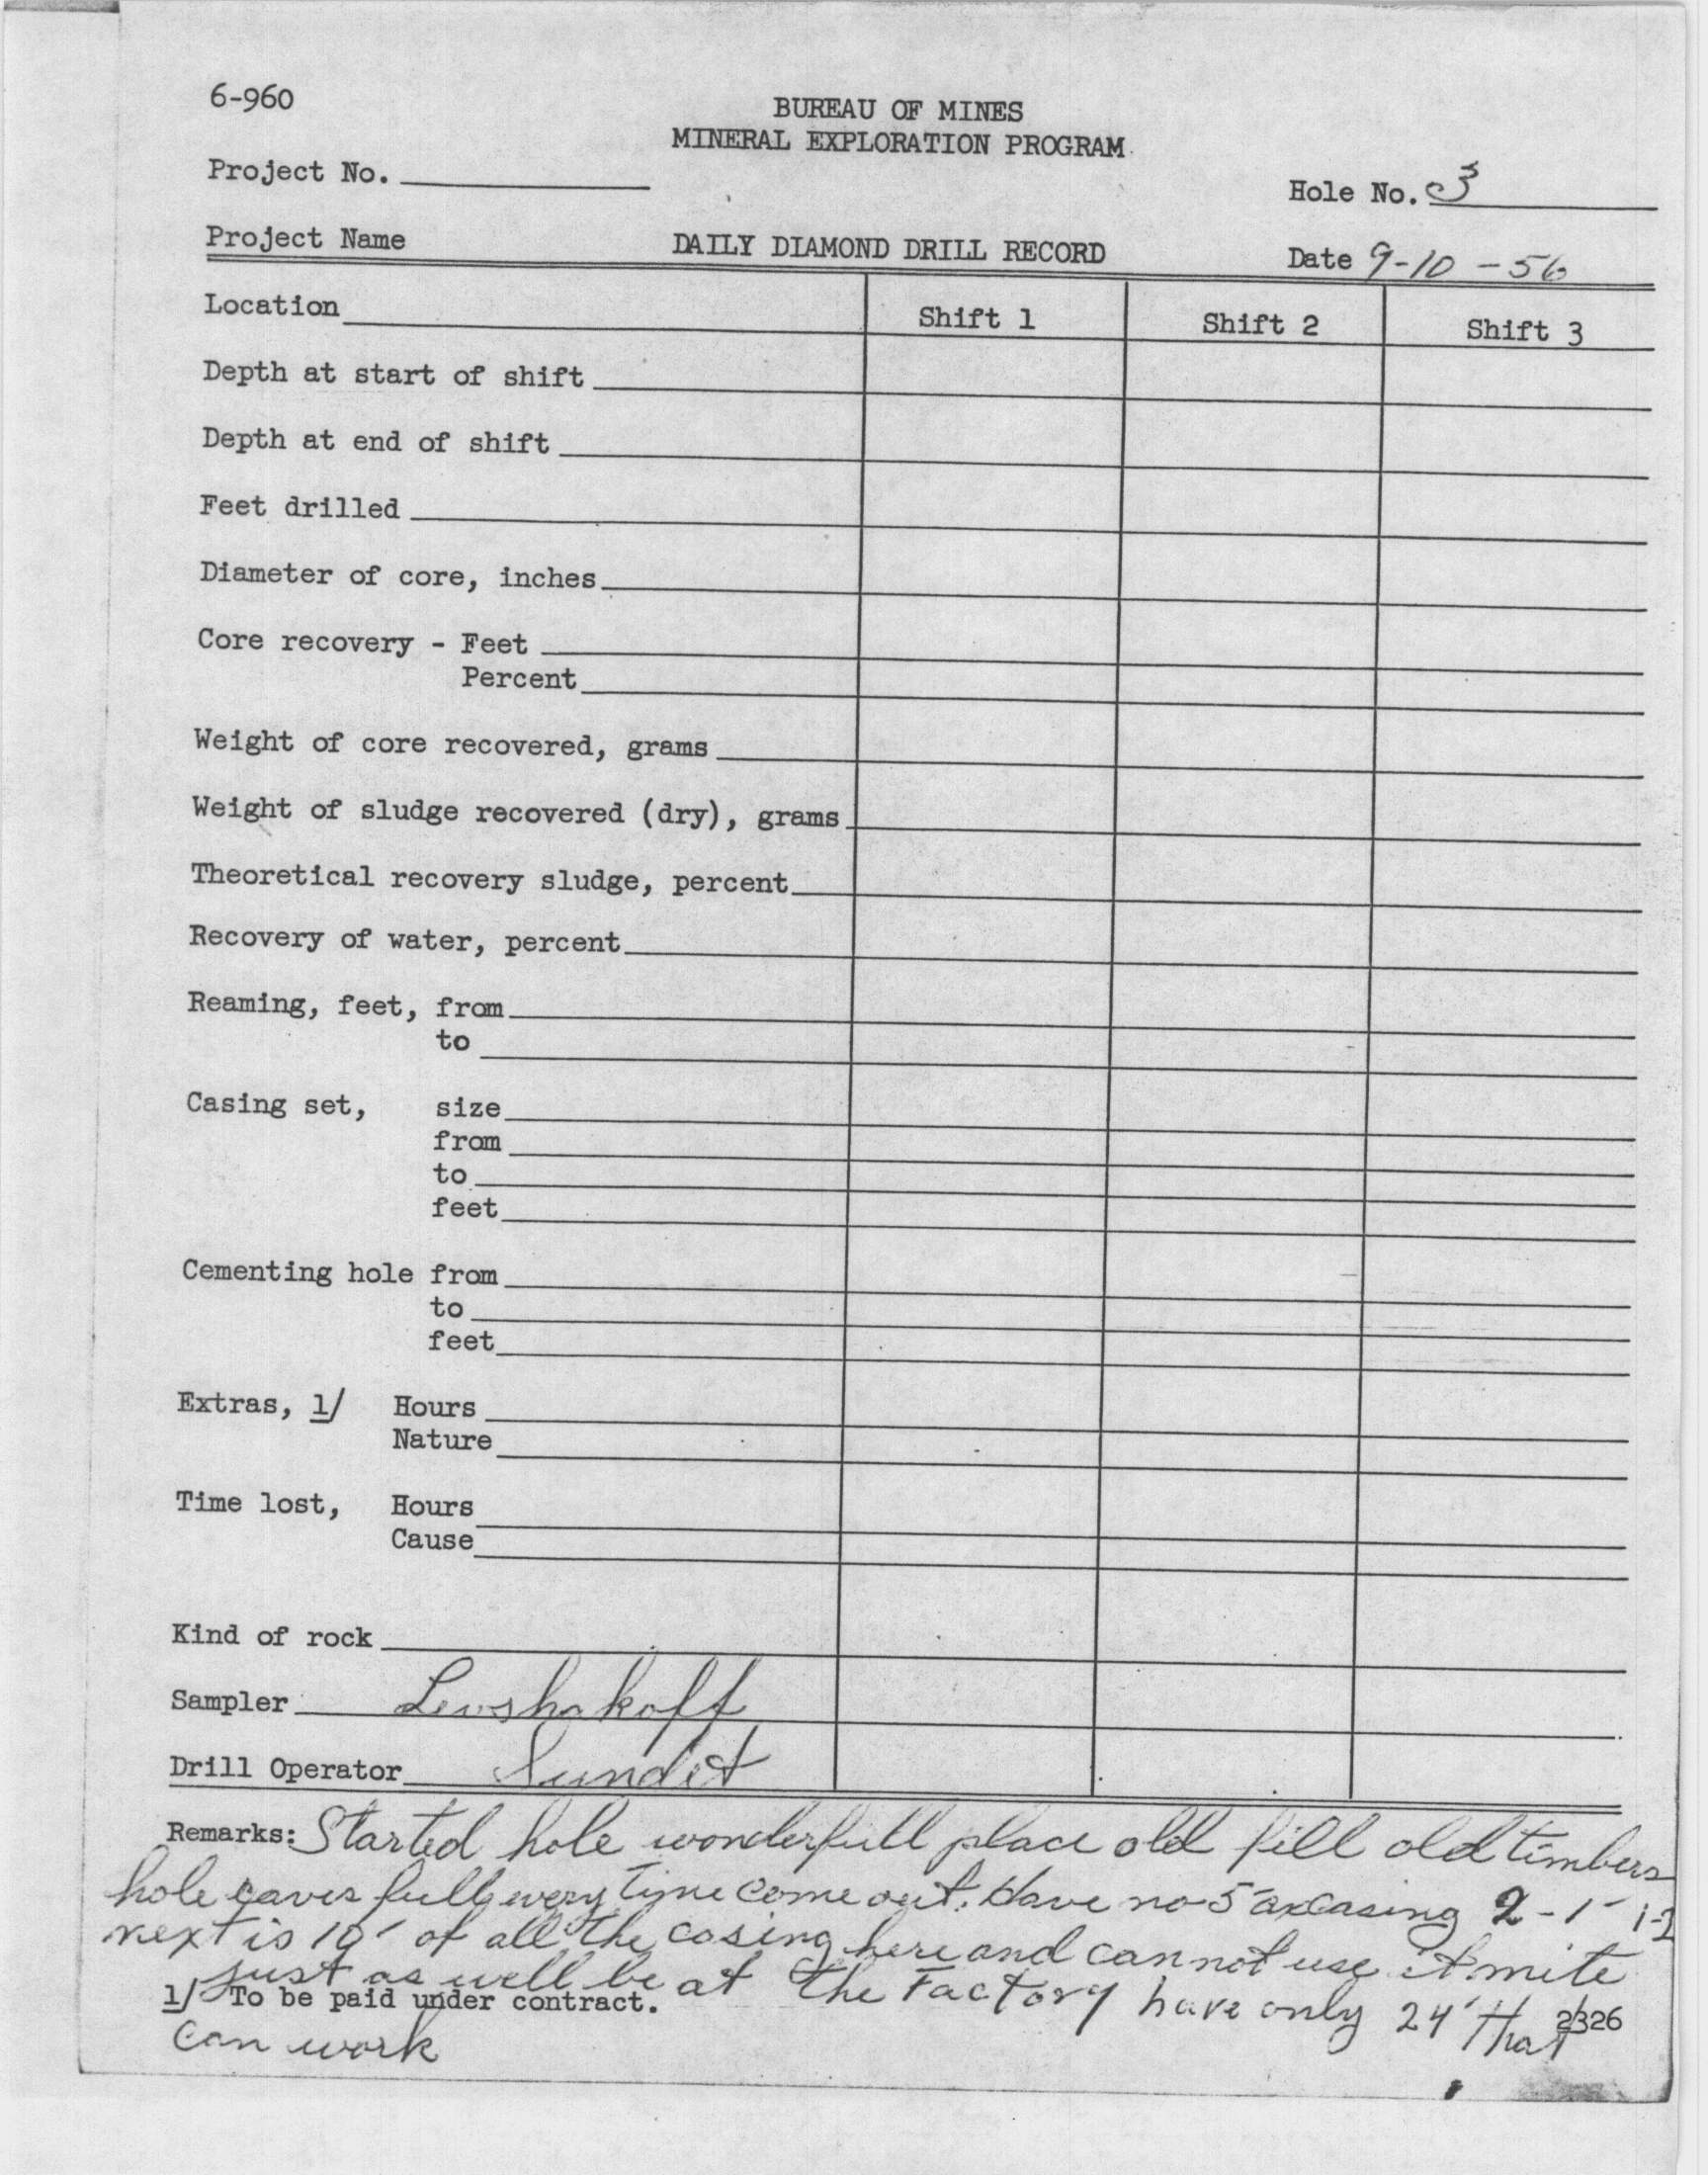 6-960
BUREAU OF MINES
MINERAL EXPLORATION PROGRAM
Project No.
Hole No. 3
Project Name
DAILY DIAMOND DRILL RECORD
Date 9-10-56
Location
Shift 1 Shift 2 Shift 3
Depth at start of shift
Depth at end of shift
Feet drilled
Diameter of core, inches
Core recovery - Feet
Percent
Weight of core recovered, grams
Weight of sludge recovered (dry), grams
Theoretical recovery sludge, percent
Recovery of water, percent
Reaming, feet, from
to
Casing set, size
from
to
feet
Cementing hole from
to
feet
Extras, 1/ Hours
Nature
Time lost, Hours
Cause
Kind of rock
Sampler
Drill Operator
Remarks: Started hole wonderfull place old fill old timbers
hole caves full every time come out. Have no 5' casing 2-1'
next is 10' of all the casing here and cannot use it mite
just as well be at the Factory have only 24' that
1/ To be paid under contract.
2326
can work